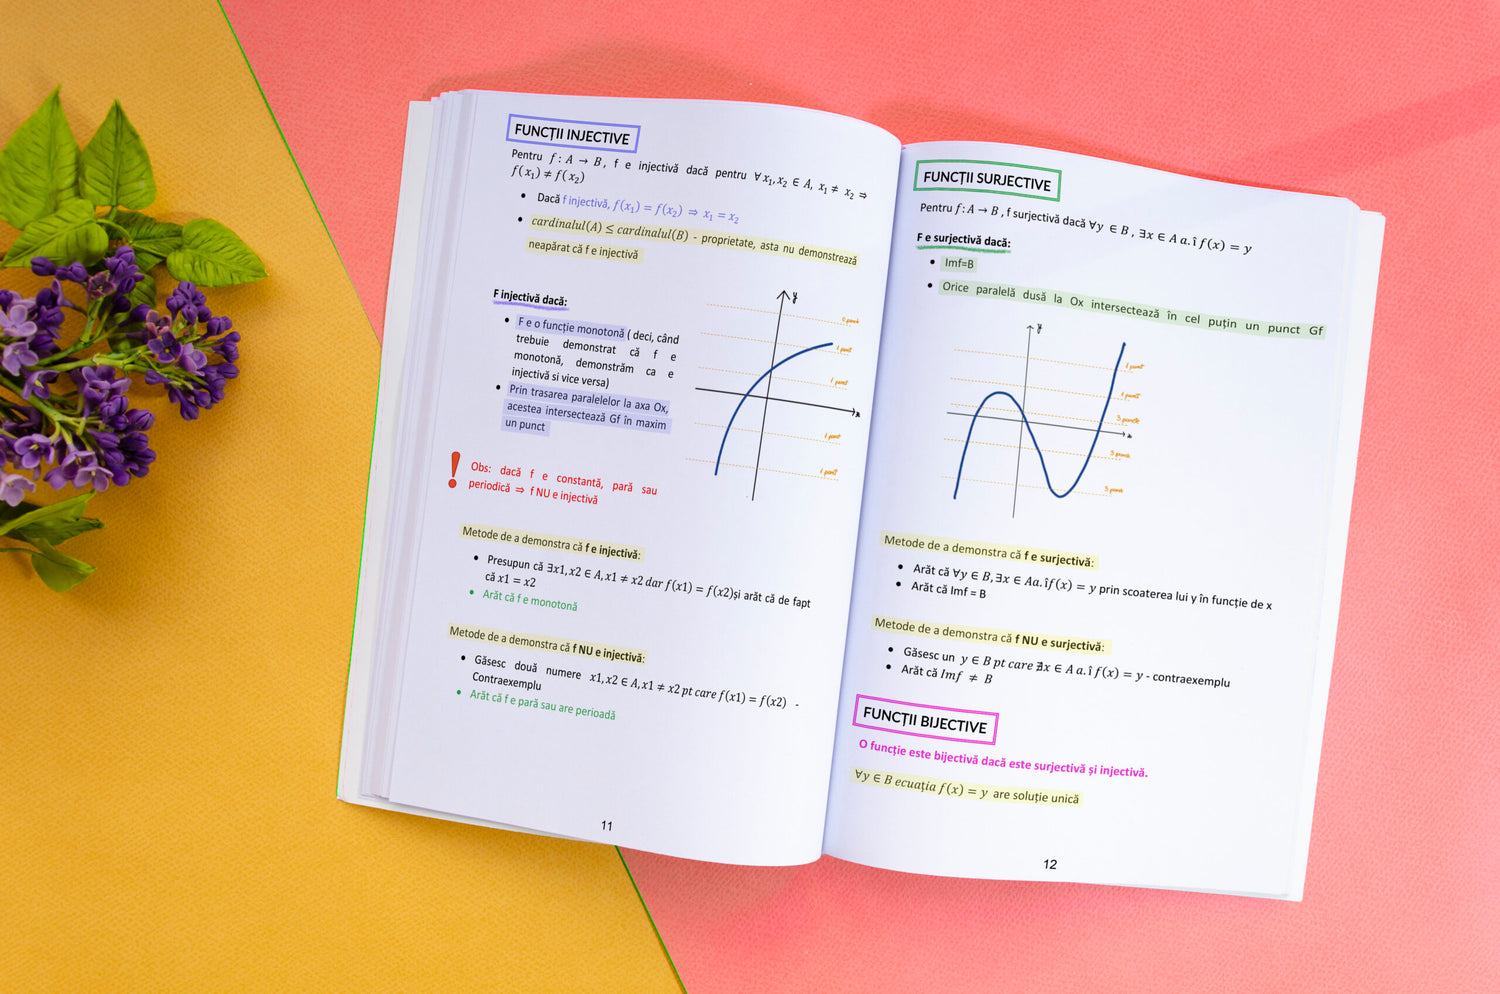 FUNCȚII INJECTIVE
Pentru f: A → B, f e injectivă dacă pentru ∀ x₁, x₂ ∈ A, x₁ ≠ x₂ ⇒
f(x₁) ≠ f(x₂)
• Dacă f injectivă, f(x₁) = f(x₂) ⇒ x₁ = x₂
• cardinalul(A) ≤ cardinalul(B) - proprietate, asta nu demonstrează
neapărat că f e injectivă
F injectivă dacă:
• F e o funcție monotonă ( deci, când
trebuie demonstrat că f e
monotonă, demonstrăm ca e
injectivă si vice versa)
• Prin trasarea paralelelor la axa Ox,
acestea intersectează Gf în maxim
un punct
y
0 punct
1 punct
1 punct
x
1 punct
1 punct
! Obs: dacă f e constantă, pară sau
periodică ⇒ f NU e injectivă
Metode de a demonstra că f e injectivă:
• Presupun că ∃x1, x2 ∈ A, x1 ≠ x2 dar f(x1) = f(x2)și arăt că de fapt
că x1 = x2
• Arăt că f e monotonă
Metode de a demonstra că f NU e injectivă:
• Găsesc două numere x1, x2 ∈ A, x1 ≠ x2 pt care f(x1) = f(x2) -
Contraexemplu
• Arăt că f e pară sau are perioadă
11
FUNCȚII SURJECTIVE
Pentru f: A → B , f surjectivă dacă ∀y ∈ B , ∃x ∈ A a. î f(x) = y
F e surjectivă dacă:
• Imf=B
• Orice paralelă dusă la Ox intersectează în cel puțin un punct Gf
y
1 punct
1 punct
3 puncte
x
3 puncte
3 puncte
Metode de a demonstra că f e surjectivă:
• Arăt că ∀y ∈ B, ∃x ∈ Aa. îf(x) = y prin scoaterea lui y în funcție de x
• Arăt că Imf = B
Metode de a demonstra că f NU e surjectivă:
• Găsesc un y ∈ B pt care ∄x ∈ A a. î f(x) = y - contraexemplu
• Arăt că Imf ≠ B
FUNCȚII BIJECTIVE
O funcție este bijectivă dacă este surjectivă și injectivă.
∀y ∈ B ecuația f(x) = y are soluție unică
12